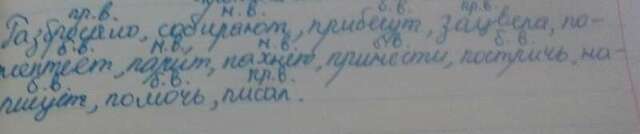 пр.в. н.в. б.в. пр.в.
Разбросало, собирают, прибегут, зацвела, по-
б.в. н.в. н.в. б.в. б.в.
желтеет, парит, пахнет, принести, постричь, на-
б.в. б.в. пр.в.
пишет, помочь, писал.